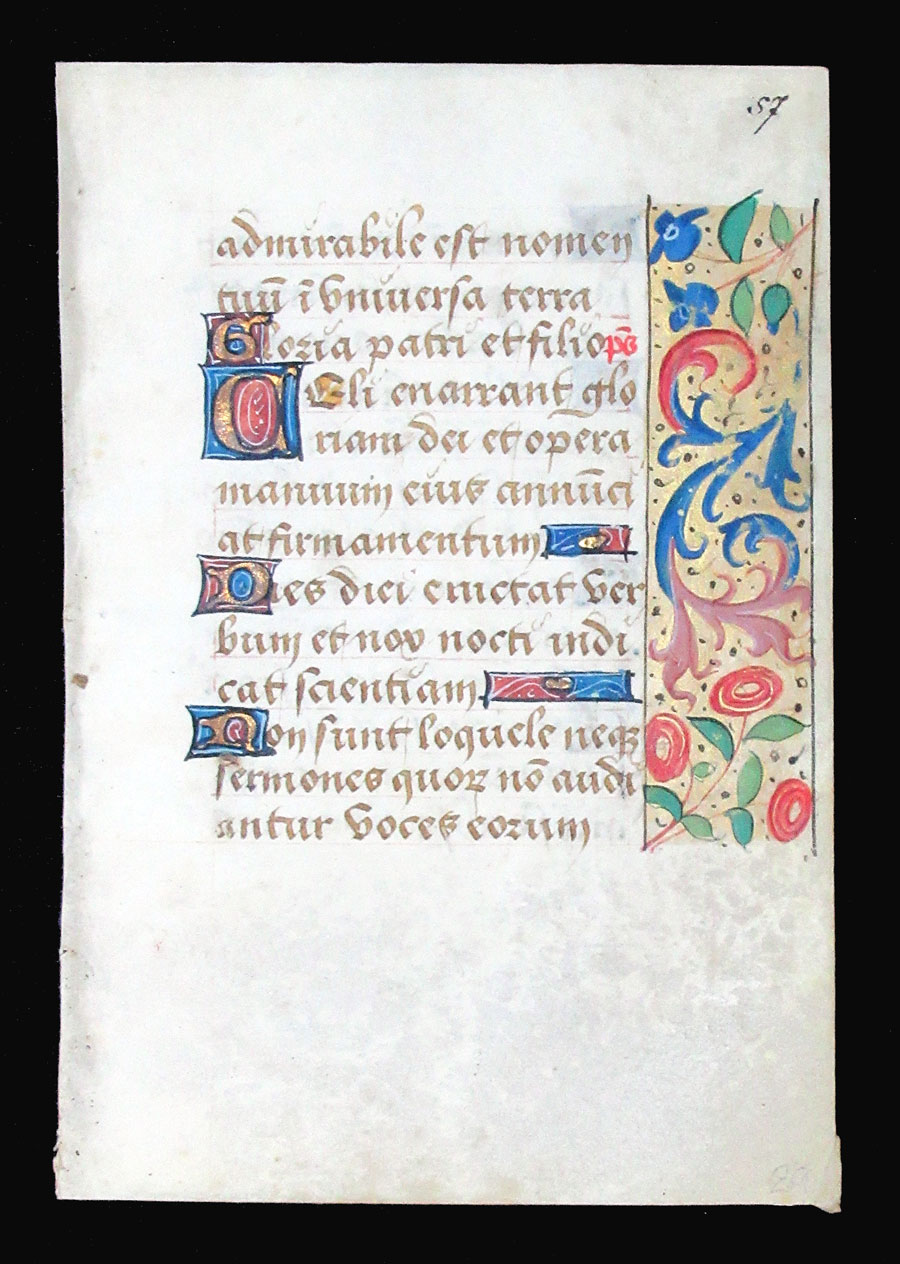 57
admirabile est nomen
tuū ī vniuersa terra
Gloria patri et filio pš
Celi enarrant glo
riam dei et opera
manuum eius annūci
at firmamentum
Dies diei eructat ver
bum et nox nocti indi
cat scientiam
Non sunt loquele neqꝫ
sermones quoꝝ nō audi
antur voces eorum